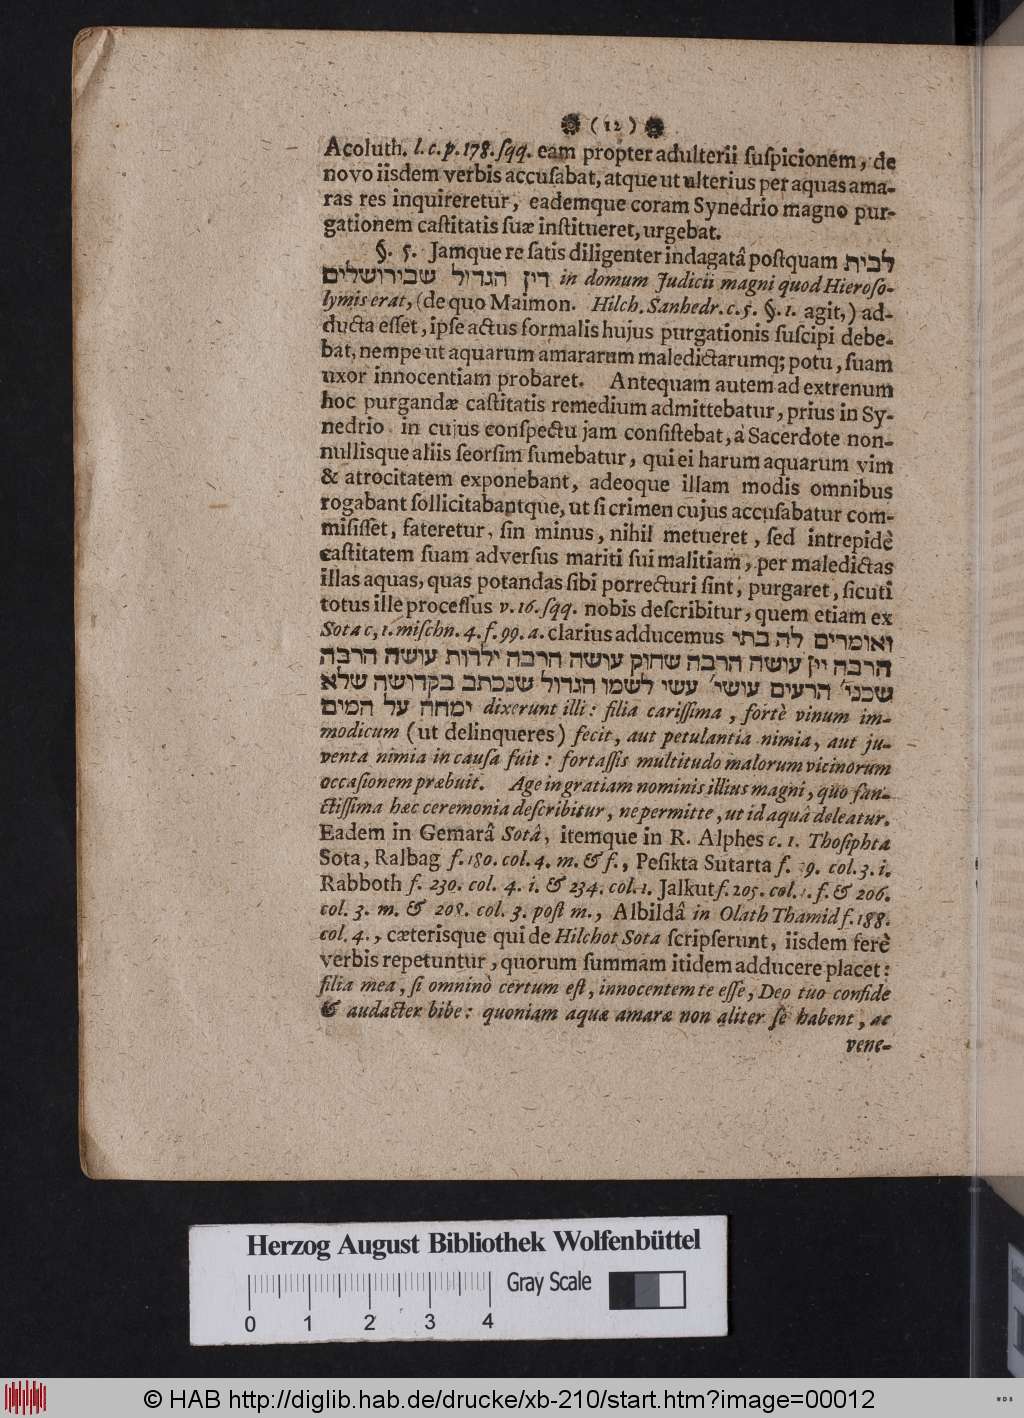 ( 12 )
Acoluth. l. c. p. 178. ſqq. eam propter adulterii ſuſpicionem, de
novo iisdem verbis accuſabat, atque ut ulterius per aquas ama-
ras res inquireretur, eademque coram Synedrio magno pur-
gationem caſtitatis ſuæ inſtitueret, urgebat.
§. 5. Jamque re ſatis diligenter indagatâ poſtquam לבית
דין הגדול שבירושלים in domum Judicii magni quod Hieroſo-
lymis erat, (de quo Maimon. Hilch. Sanhedr. c. 5. §. 1. agit,) ad-
ducta eſſet, ipſe actus formalis hujus purgationis ſuſcipi debe-
bat, nempe ut aquarum amararum maledictarumq; potu, ſuam
uxor innocentiam probaret. Antequam autem ad extrenum
hoc purgandæ caſtitatis remedium admittebatur, prius in Sy-
nedrio in cujus conſpectu jam conſiſtebat, à Sacerdote non-
nullisque aliis ſeorſim ſumebatur, qui ei harum aquarum vim
& atrocitatem exponebant, adeoque illam modis omnibus
rogabant ſollicitabantque, ut ſi crimen cujus accuſabatur com-
miſiſſet, fateretur, ſin minus, nihil metueret, ſed intrepidè
caſtitatem ſuam adverſus mariti ſui malitiam, per maledictas
illas aquas, quas potandas ſibi porrecturi ſint, purgaret, ſicuti
totus ille proceſſus v. 16. ſqq. nobis deſcribitur, quem etiam ex
Sota c, 1. miſchn. 4. f. 99. a. clarius adducemus ואומרים לה בתי
הרבה יין עושה הרבה שחוק עושה הרבה ילדות עושה הרבה
שכני׳ הרעים עושי׳ עשי לשמו הגדול שנכתב בקדושה שלא
ימחה על המים dixerunt illi: filia cariſſima, fortè vinum im-
modicum (ut delinqueres) fecit, aut petulantia nimia, aut ju-
venta nimia in cauſa fuit: fortaſſis multitudo malorum vicinorum
occaſionem præbuit. Age in gratiam nominis illius magni, quo ſan-
ctiſſima hæc ceremonia deſcribitur, ne permitte, ut id aquâ deleatur.
Eadem in Gemarâ Sotâ, itemque in R. Alphes c. 1. Thoſiphta
Sota, Ralbag f. 180. col. 4. m. & f., Peſikta Sutarta f. 9. col. 3. i.
Rabboth f. 230. col. 4. i. & 234. col. 1. Jalkut f. 205. col. 1. f. & 206.
col. 3. m. & 208. col. 3. poſt m., Albildâ in Olath Thamid f. 188.
col. 4., cæterisque qui de Hilchot Sota ſcripſerunt, iisdem ferè
verbis repetuntur, quorum ſummam itidem adducere placet:
filia mea, ſi omninò certum eſt, innocentem te eſſe, Deo tuo confide
& audacter bibe: quoniam aquæ amaræ non aliter ſe habent, ac
vene-
Herzog August Bibliothek Wolfenbüttel
0 1 2 3 4 Gray Scale
© HAB http://diglib.hab.de/drucke/xb-210/start.htm?image=00012